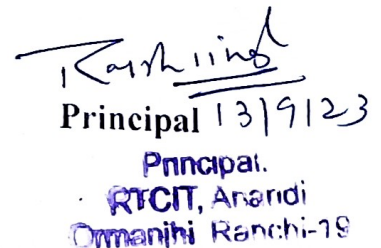 Principal 13/9/23
Principal.
RTCIT, Anandi
Ormanjhi Ranchi-19